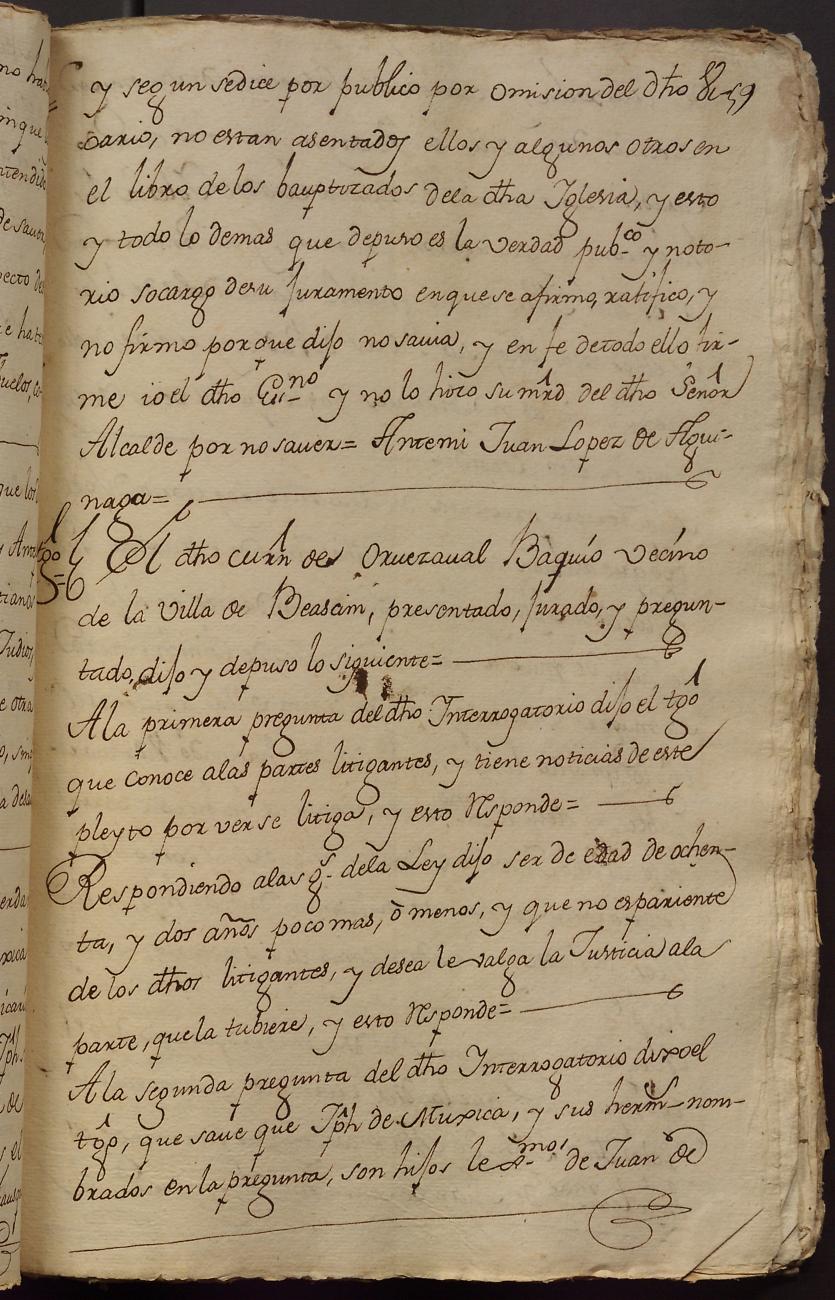 y segun sedice por publico por omision del dho
59
sario, no estan asentados ellos y algunos otros en
el libro de los bauptizados dela dha Iglesia, y esto
y todo lo demas que depuso es la verdad pubco y noto-
rio socargo desu Juramento enquese afirmo, ratifico, y
no firmo porque dijo no savia, y en fe detodo ello fir-
me io el dho Essno y no lo hizo su mrd del dho Señor
Alcalde por no saver= Antemi Juan Lopez de Agui-
naga=
tgo
6
El dho de Oruezaual Baquio vecino
de la villa de Beasain, presentado, jurado, y pregun-
tado, dijo y depuso lo siguiente=
A la primera pregunta del dho Interrogatorio dijo el tgo
que conoce alas partes litigantes, y tiene noticias de este
pleyto por ver se litiga, y esto Responde=
Respondiendo alas gs dela Ley dijo ser de edad de ochen-
ta, y dos años poco mas, ò menos, y que no es pariente
de los dhos litigantes, y desea le valga la Justicia ala
parte, que la tubiere, y esto Responde=
A la segunda pregunta del dho Interrogatorio dixo el
tgo, que save que Jph de Muxica, y sus herms nom-
brados en la pregunta, son hijos lexmos de Juan de